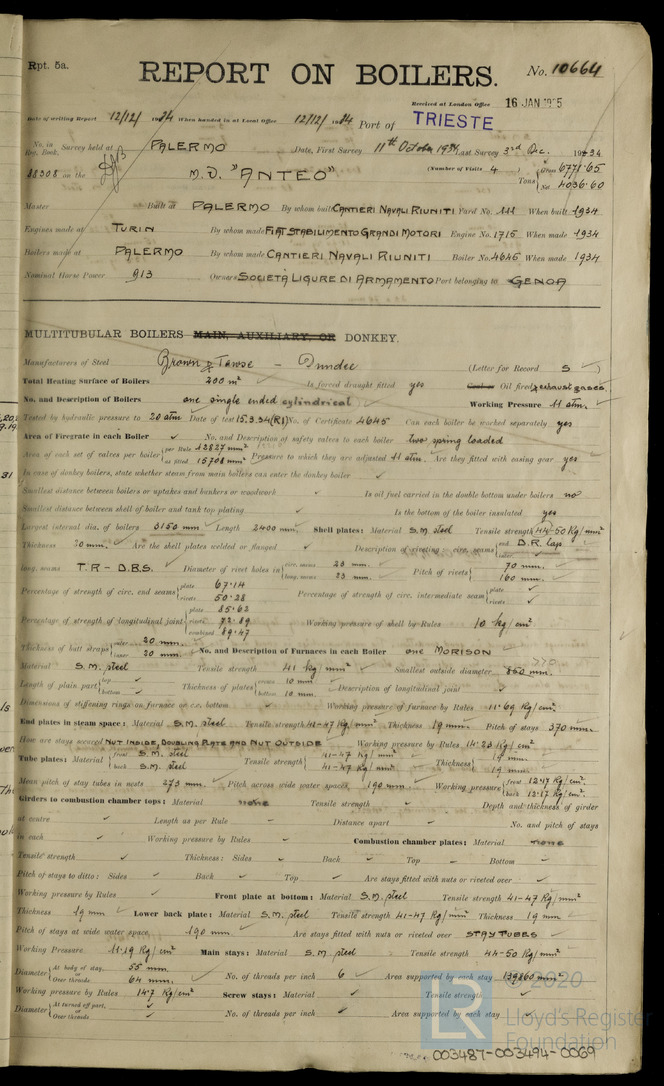 Rpt. 5a.
REPORT ON BOILERS.
No. 10664
Received at London Office 16 JAN 1935
Date of writing Report 12/12/1934 When handed in at Local Office 12/12/1934 Port of TRIESTE
No. in Reg. Book. Survey held at PALERMO Date, First Survey 11th October 1934 Last Survey 3rd Dec. 1934
88308 on the M.V. "ANTEO" (Number of Visits 4 ) Tons Gross 6771.65 Net 4036.60
Master Built at PALERMO By whom built CANTIERI NAVALI RIUNITI Yard No. 111 When built 1934
Engines made at TURIN By whom made FIAT STABILIMENTO GRANDI MOTORI Engine No. 1715 When made 1934
Boilers made at PALERMO By whom made CANTIERI NAVALI RIUNITI Boiler No. 4645 When made 1934
Nominal Horse Power 913 Owners SOCIETÀ LIGURE DI ARMAMENTO Port belonging to GENOA
MULTITUBULAR BOILERS MAIN, AUXILIARY, OR DONKEY.
Manufacturers of Steel Brown & Tawse - Dundee (Letter for Record S ✓)
Total Heating Surface of Boilers 200 m² Is forced draught fitted yes Coal or Oil fired & exhaust gases.
No. and Description of Boilers one single ended cylindrical ✓ Working Pressure 11 atm. ✓
Tested by hydraulic pressure to 20 atm Date of test 15.3.34 (R1) No. of Certificate 4645 Can each boiler be worked separately yes
Area of Firegrate in each Boiler ✓ No. and Description of safety valves to each boiler two spring loaded
Area of each set of valves per boiler per Rule 12827 mm² as fitted 15708 mm² Pressure to which they are adjusted 11 atm. Are they fitted with easing gear yes ✓
In case of donkey boilers, state whether steam from main boilers can enter the donkey boiler ✓
Smallest distance between boilers or uptakes and bunkers or woodwork ✓ Is oil fuel carried in the double bottom under boilers no
Smallest distance between shell of boiler and tank top plating ✓ Is the bottom of the boiler insulated yes
Largest internal dia. of boilers 3150 mm Length 2400 mm. Shell plates: Material S.M. steel Tensile strength 44-50 Kg/mm²
Thickness 20 mm. ✓ Are the shell plates welded or flanged ✓ Description of riveting: circ. seams end D.R. lap inter. ✓
long. seams T.R - D.B.S. ✓ Diameter of rivet holes in circ. seams 23 mm. long. seams 23 mm. Pitch of rivets 70 mm. 160 mm.
Percentage of strength of circ. end seams plate 67.14 rivets 50.28 Percentage of strength of circ. intermediate seam plate ✓ rivets ✓
Percentage of strength of longitudinal joint plate 85.62 rivets 72.89 combined 89.47 Working pressure of shell by Rules 10 kg/cm²
Thickness of butt straps outer 20 mm. inner 20 mm. No. and Description of Furnaces in each Boiler one MORISON ✓
Material S.M. steel Tensile strength 41 kg/mm² ✓ Smallest outside diameter
Length of plain part top ✓ bottom ✓ Thickness of plates crown 10 mm bottom 10 mm ✓ Description of longitudinal joint ✓
Dimensions of stiffening rings on furnace or c.c. bottom ✓ Working pressure of furnace by Rules 11.69 Kg/cm²
End plates in steam space: Material S.M. steel Tensile strength 41-47 Kg/mm² Thickness 19 mm. ✓ Pitch of stays 370 mm.
How are stays secured NUT INSIDE, DOUBLING PLATE AND NUT OUTSIDE Working pressure by Rules 14.23 Kg/cm²
Tube plates: Material front S.M. steel back S.M. steel Tensile strength 41-47 Kg/mm² 41-47 Kg/mm² Thickness 19 mm. 19 mm.
Mean pitch of stay tubes in nests 273 mm. Pitch across wide water spaces 190 mm. ✓ Working pressure front 12.17 Kg/cm² back 12.17 Kg/cm²
Girders to combustion chamber tops: Material none Tensile strength ✓ Depth and thickness of girder
at centre ✓ Length as per Rule ✓ Distance apart ✓ No. and pitch of stays
in each ✓ Working pressure by Rules ✓ Combustion chamber plates: Material none
Tensile strength ✓ Thickness: Sides ✓ Back ✓ Top ✓ Bottom ✓
Pitch of stays to ditto: Sides ✓ Back ✓ Top ✓ Are stays fitted with nuts or riveted over ✓
Working pressure by Rules ✓ Front plate at bottom: Material S.M. steel Tensile strength 41-47 Kg/mm²
Thickness 19 mm ✓ Lower back plate: Material S.M. steel Tensile strength 41-47 Kg/mm² Thickness 19 mm ✓
Pitch of stays at wide water space 190 mm. ✓ Are stays fitted with nuts or riveted over STAY TUBES ✓
Working Pressure 11.19 Kg/cm² Main stays: Material S.M. steel Tensile strength 44-50 Kg/mm²
Diameter At body of stay, 55 mm. or Over threads 64 mm. No. of threads per inch 6 ✓ Area supported by each stay 139860 mm²
Working pressure by Rules 14.7 Kg/cm² Screw stays: Material ✓ Tensile strength ✓
Diameter At turned off part, ✓ or Over threads ✓ No. of threads per inch ✓ Area supported by each stay ✓
© 2020
LR
Lloyd's Register
Foundation
003487-003494-0069